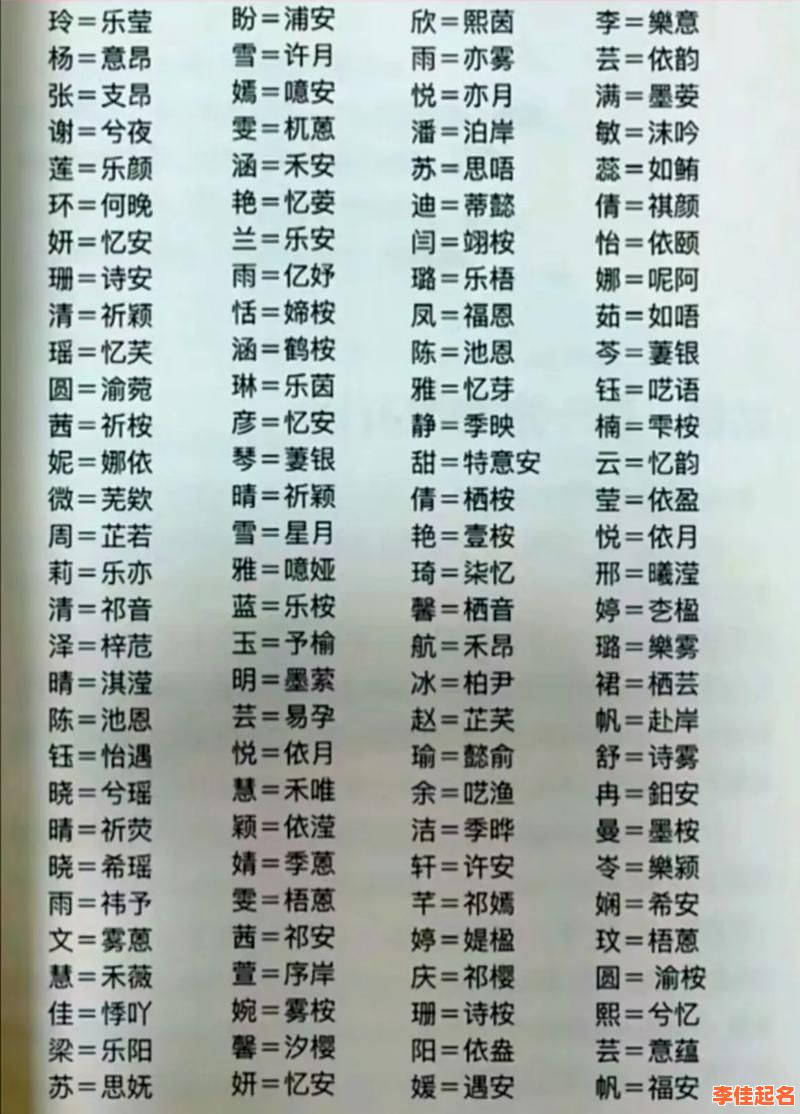 玲=乐莹 盼=浦安 欣=熙茵 李=樂意
杨=意昂 雪=许月 雨=亦雾 芸=依韵
张=支昂 嫣=噫安 悦=亦月 满=墨荌
谢=兮夜 雯=杌蒽 潘=泊岸 敏=沫吟
莲=乐颜 涵=禾安 苏=思唔 蕊=如鲔
环=何晚 艳=忆荌 迪=蒂懿 倩=祺颜
妍=忆安 兰=乐安 闫=翊桉 怡=依颐
珊=诗安 雨=亿妤 璐=乐梧 娜=呢阿
清=祈颖 恬=媂桉 凤=福恩 茹=如唔
瑶=忆芙 涵=鹤桉 陈=池恩 芩=萋银
圆=渝菀 琳=乐茵 雅=忆芽 钰=呓语
茜=祈桉 彦=忆安 静=季映 楠=雫桉
妮=娜依 琴=萋银 甜=特意安 云=忆韵
微=芜欸 晴=祈颖 倩=栖桉 莹=依盈
周=芷若 雪=星月 艳=壹桉 悦=依月
莉=乐亦 雅=噫娅 琦=柒忆 邢=曦滢
清=祁音 蓝=乐桉 馨=栖音 婷=楹
泽=梓苊 玉=予榆 航=禾昂 璐=樂雾
晴=淇滢 明=墨萦 冰=柏尹 裙=栖芸
陈=池恩 芸=易孕 赵=芷芙 帆=赴岸
钰=怡遇 悦=依月 瑜=懿俞 舒=诗雾
晓=兮瑶 慧=禾唯 余=呓渔 冉=鈤安
晴=祈荧 颖=依滢 洁=季晔 曼=墨桉
晓=希瑶 婧=季蒽 轩=许安 岺=樂颖
雨=祎予 雯=梧蒽 芊=祁嫣 娴=希安
文=雾蒽 茜=祁安 婷=媞楹 玟=梧蒽
慧=禾薇 萱=序岸 庆=祁樱 圆=渝桉
佳=悸吖 婉=雾桉 珊=诗桉 熙=兮忆
梁=乐阳 馨=汐樱 阳=依盎 芸=意蕴
苏=思妩 妍=忆安 媛=遇安 帆=福安
李佳起名